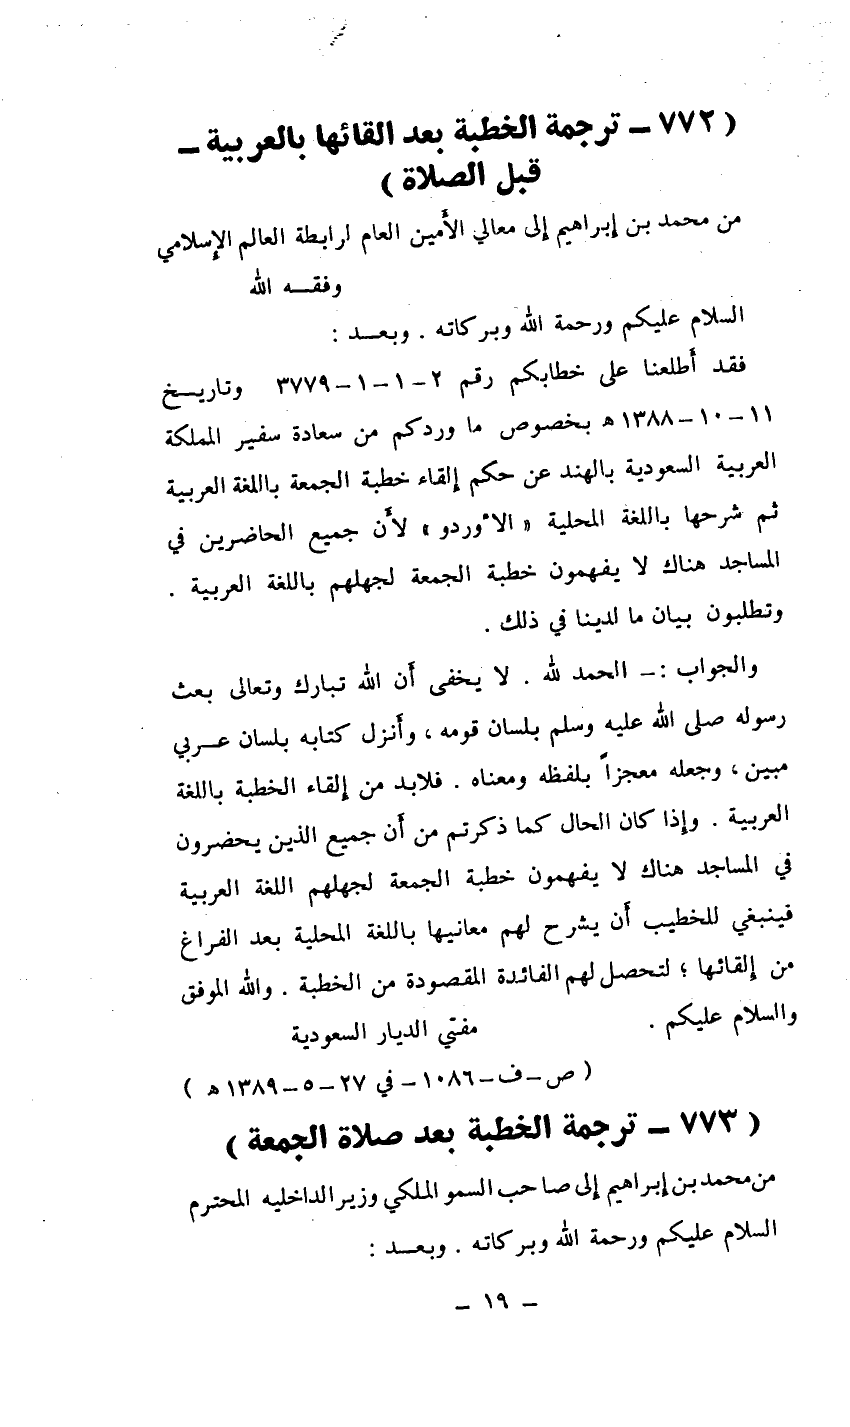 ( ٧٧٢ ــ ترجمة الخطبة بعد القائها بالعربية ــ
قبل الصلاة )
من محمد بن إبراهيم إلى معالي الأمين العام لرابطة العالم الإسلامي
وفقـــه الله
السلام عليكم ورحمة الله وبركاته . وبعـــد :
فقد أطلعنا على خطابكم رقم ٢ــ١ــ١ــ٣٧٧٩ وتاريـــخ
١١ــ١٠ــ١٣٨٨ ه بخصوص ما وردكم من سعادة سفير المملكة
العربية السعودية بالهند عن حكم إلقاء خطبة الجمعة باللغة العربية
ثم شرحها باللغة المحلية « الأوردو » لأن جميع الحاضرين في
المساجد هناك لا يفهمون خطبة الجمعة لجهلهم باللغة العربية .
وتطلبون بيان ما لدينا في ذلك .
والجواب :ــ الحمد لله . لا يخفى أن الله تبارك وتعالى بعث
رسوله صلى الله عليه وسلم بلسان قومه ، وأنزل كتابه بلسان عـــربي
مبين ، وجعله معجزاً بلفظه ومعناه . فلابد من إلقاء الخطبة باللغة
العربية . وإذا كان الحال كما ذكرتم من أن جميع الذين يحضرون
في المساجد هناك لا يفهمون خطبة الجمعة لجهلهم اللغة العربية
فينبغي للخطيب أن يشرح لهم معانيها باللغة المحلية بعد الفراغ
من إلقائها ؛ لتحصل لهم الفائدة المقصودة من الخطبة . والله الموفق
والسلام عليكم . مفتي الديار السعودية
( ص ــ ف ــ ١٠٨٦ ــ في ٢٧ ــ ٥ ــ ١٣٨٩ ه )
( ٧٧٣ ــ ترجمة الخطبة بعد صلاة الجمعة )
من محمد بن إبراهيم إلى صاحب السمو الملكي وزير الداخليه المحترم
السلام عليكم ورحمة الله وبركاته . وبعـــد :
ــ ١٩ ــ